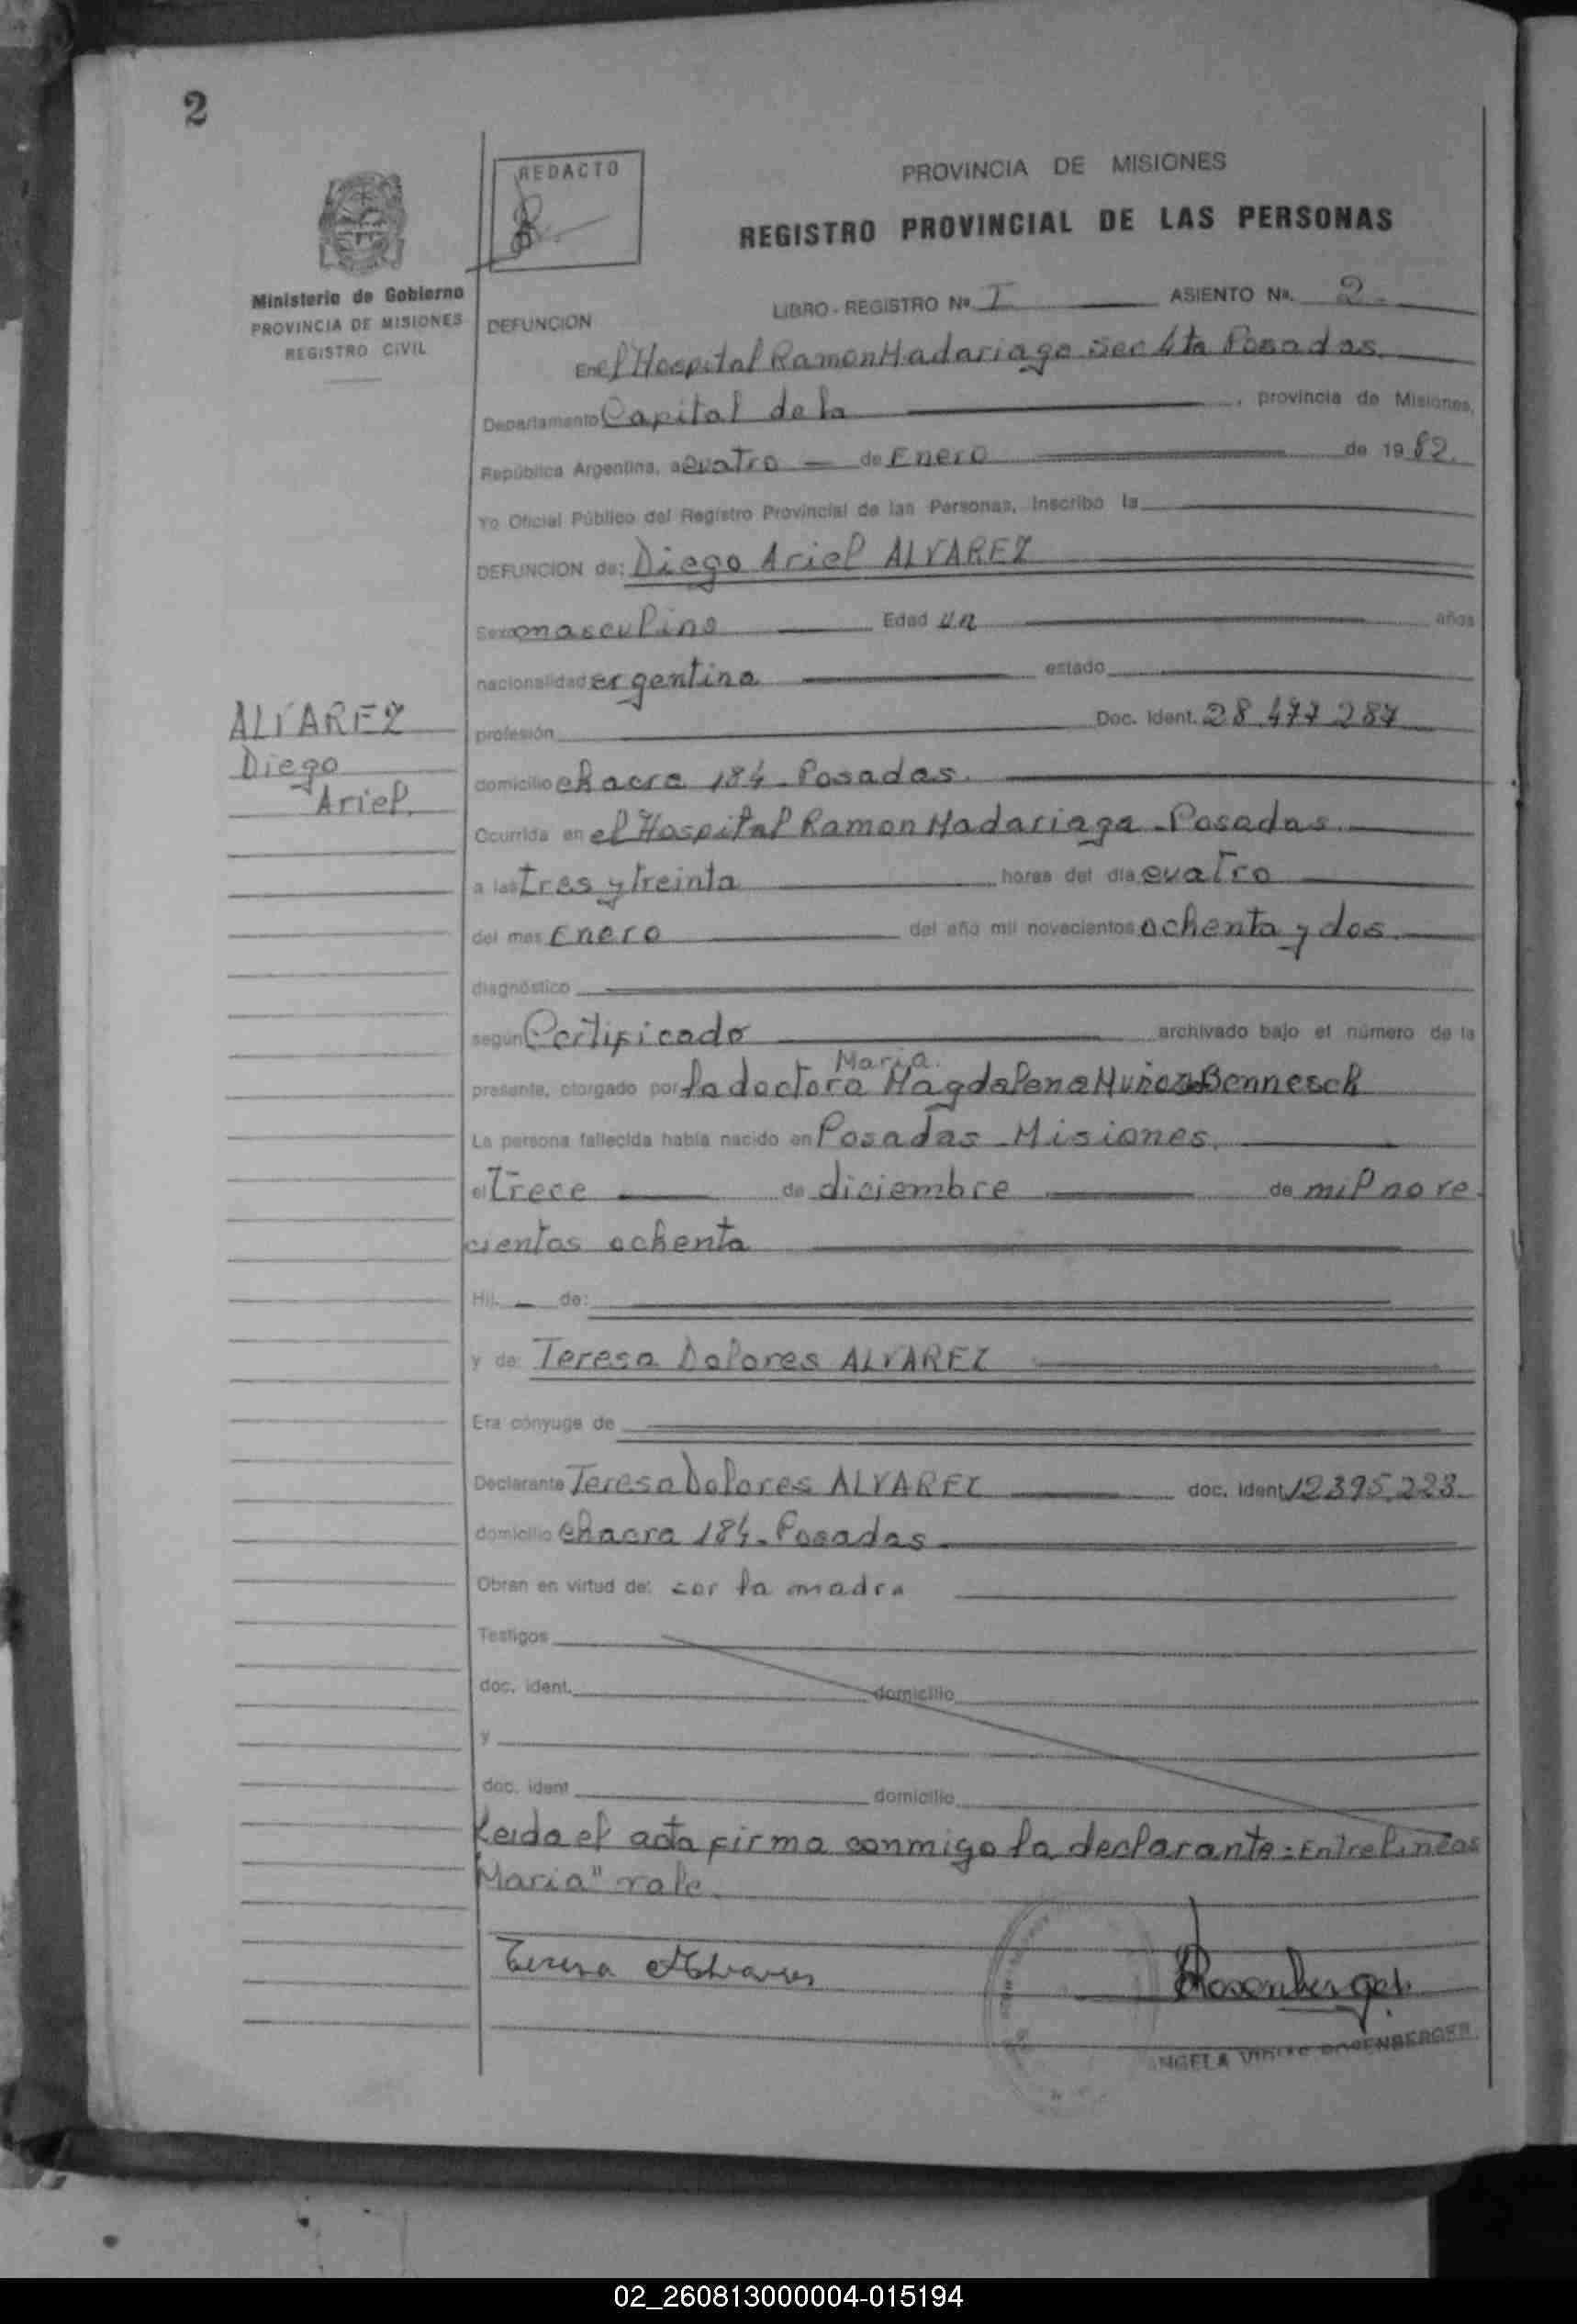 2
REDACTO
PROVINCIA DE MISIONES
REGISTRO PROVINCIAL DE LAS PERSONAS
Ministerio de Gobierno
PROVINCIA DE MISIONES
REGISTRO CIVIL
LIBRO - REGISTRO Nº. I ASIENTO Nº. 2.
DEFUNCION
En el Hospital Ramon Madariaga Sec 4ta Posadas.
Departamento Capital de la , provincia de Misiones,
República Argentina, a cuatro de Enero de 1982.
Yo Oficial Público del Registro Provincial de las Personas, inscribo la
DEFUNCION de: Diego Ariel ALVAREZ
Sexo masculino Edad un años
nacionalidad argentina estado
ALVAREZ
Diego
Ariel.
profesión Doc. Ident. 28.477.287
domicilio chacra 184 - Posadas.
Ocurrida en el Hospital Ramon Madariaga - Posadas.
a las tres y treinta horas del día cuatro
del mes Enero del año mil novecientos ochenta y dos.
diagnóstico
según Certificado archivado bajo el número de la
Maria.
presente, otorgado por la doctora Magdalena Muñoz Bennesch
La persona fallecida había nacido en Posadas - Misiones.
el trece de diciembre de mil nove
cientos ochenta
Hij. de:
y de: Teresa Dolores ALVAREZ
Era cónyuge de
Declarante Teresa Dolores ALVAREZ doc. ident 12.395.223.
domicilio chacra 184. Posadas
Obran en virtud de: ser la madre
Testigos
doc. ident. domicilio
y
doc. ident domicilio
Leida el acta firma conmigo la declarante: Entre lineas
"Maria" vale.
Teresa Alvares
Rosenberger
ROSENBERGER
02_260813000004-015194